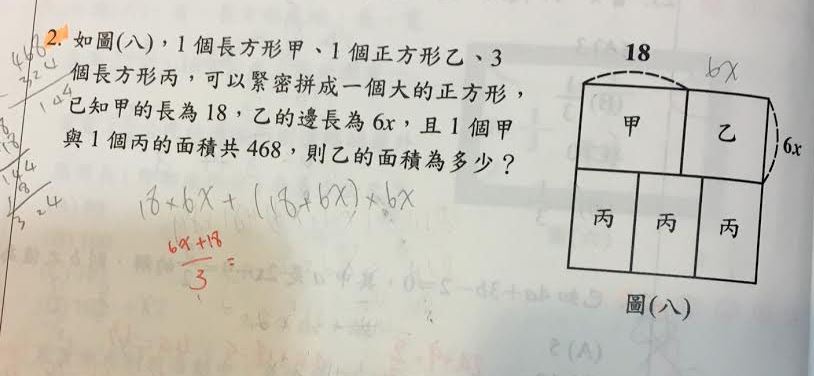 2. 如圖(八)，1個長方形甲、1個正方形乙、3
個長方形丙，可以緊密拼成一個大的正方形，
已知甲的長為18，乙的邊長為6x，且1個甲
與1個丙的面積共468，則乙的面積為多少？
18×6x+(18+6x)×6x
6x+18
3
=
468
324
144
18
144
18
324
18
6x
甲
乙
6x
丙
丙
丙
圖(八)